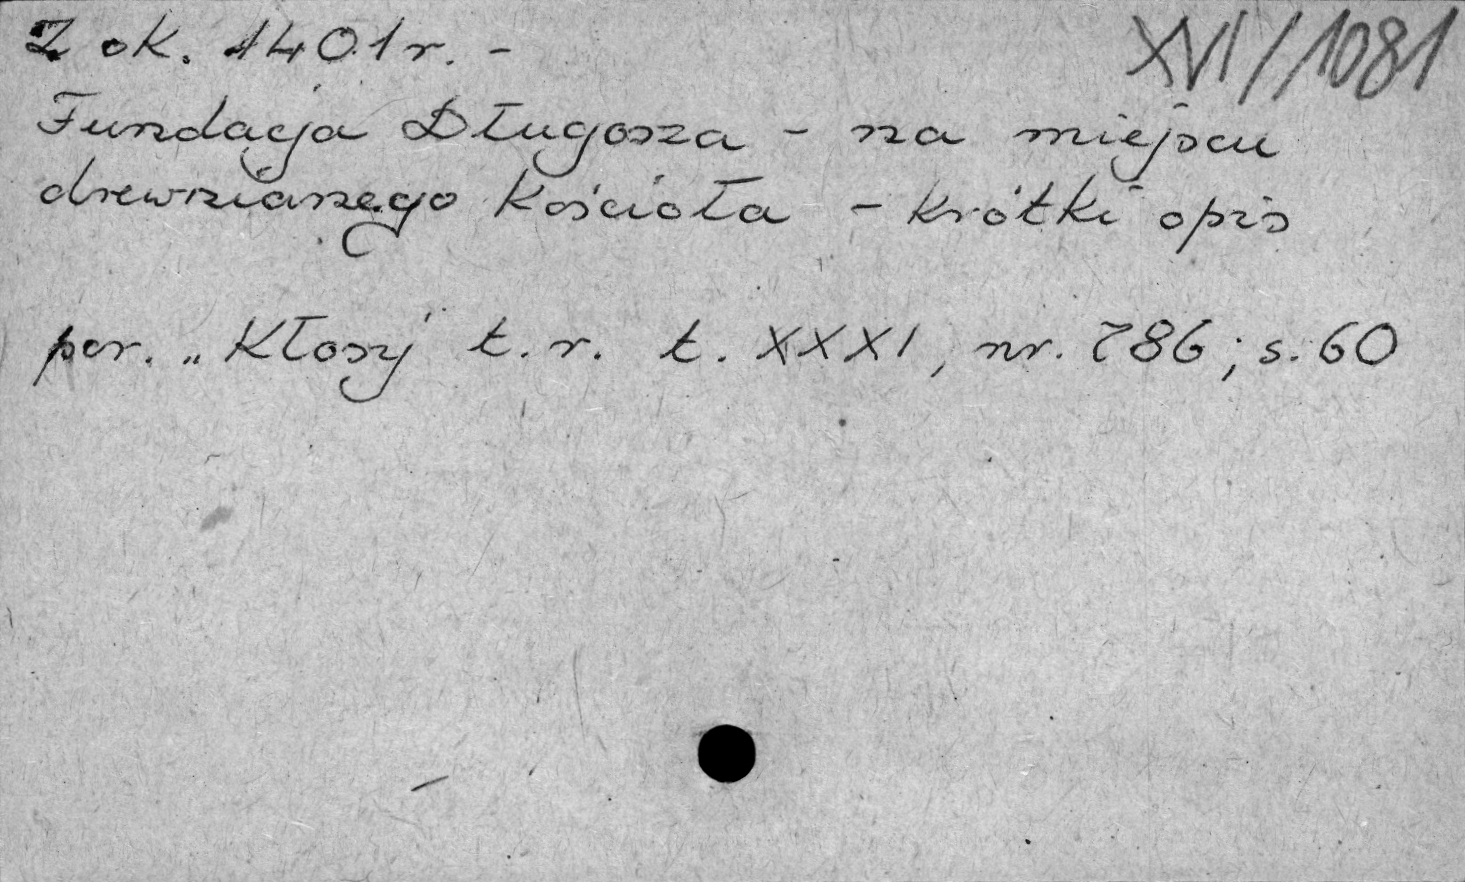 Z ok. 1401 r. -
XVI/1081
Fundacja Długosza - na miejscu
drewnianego Kościoła - krótki opis
por. „Kłosy" t. r. t. XXXI, nr. 786; s. 60